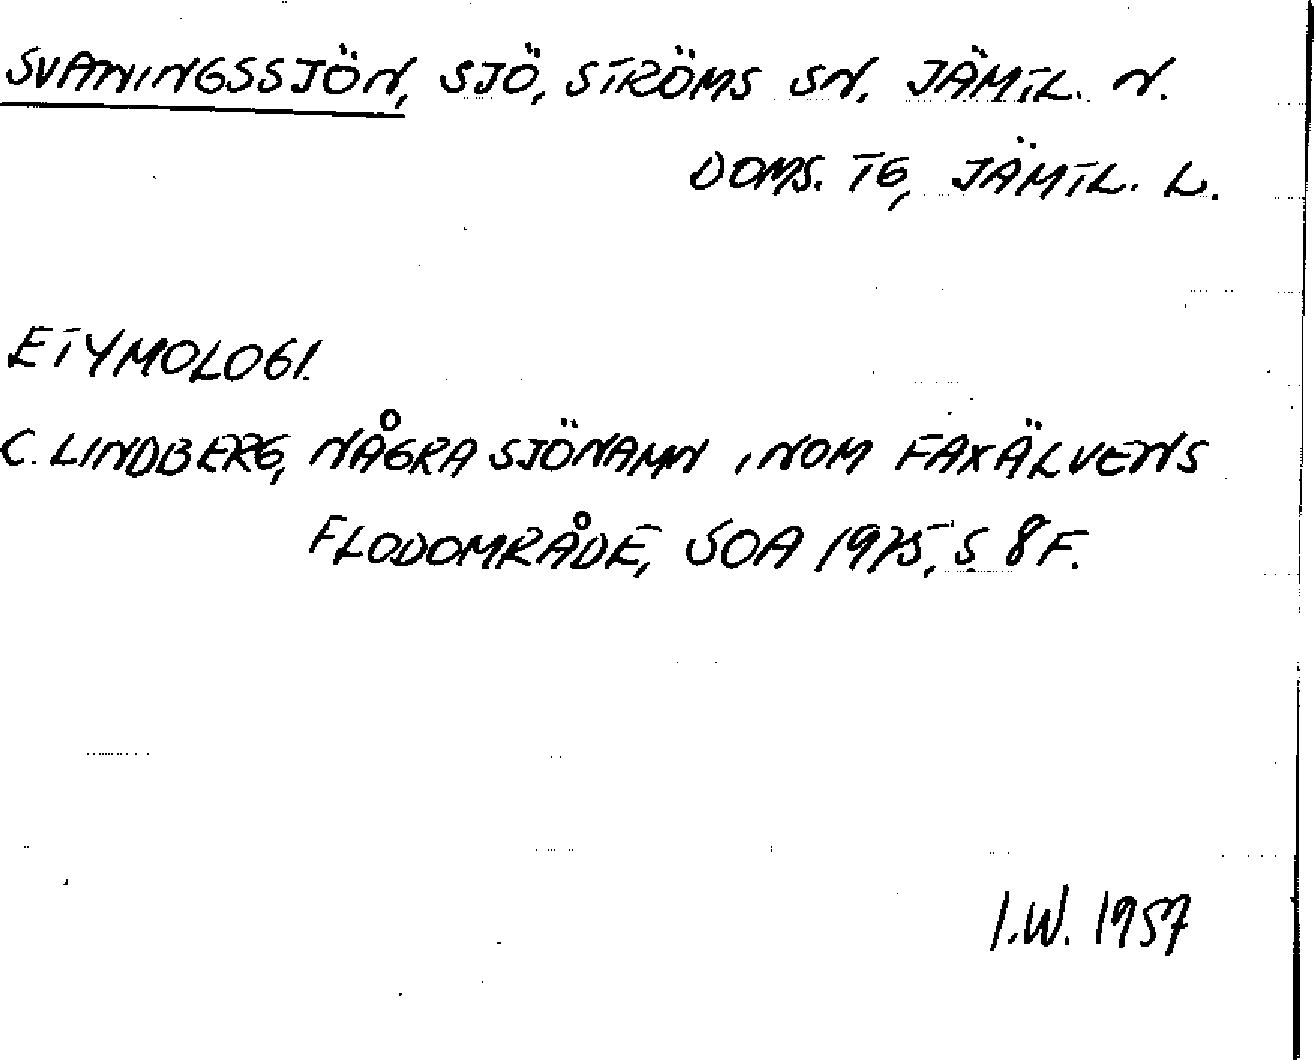 SVANINGSSJÖN, SJÖ, STRÖMS SN, JÄMTL. N.
DOMS. TG, JÄMTL. L.
ETYMOLOGI.
C. LINDBERG, NÅGRA SJÖNAMN INOM FAXÄLVENS
FLODOMRÅDE, SOA 1975, S. 8 F.
I.W. 1957